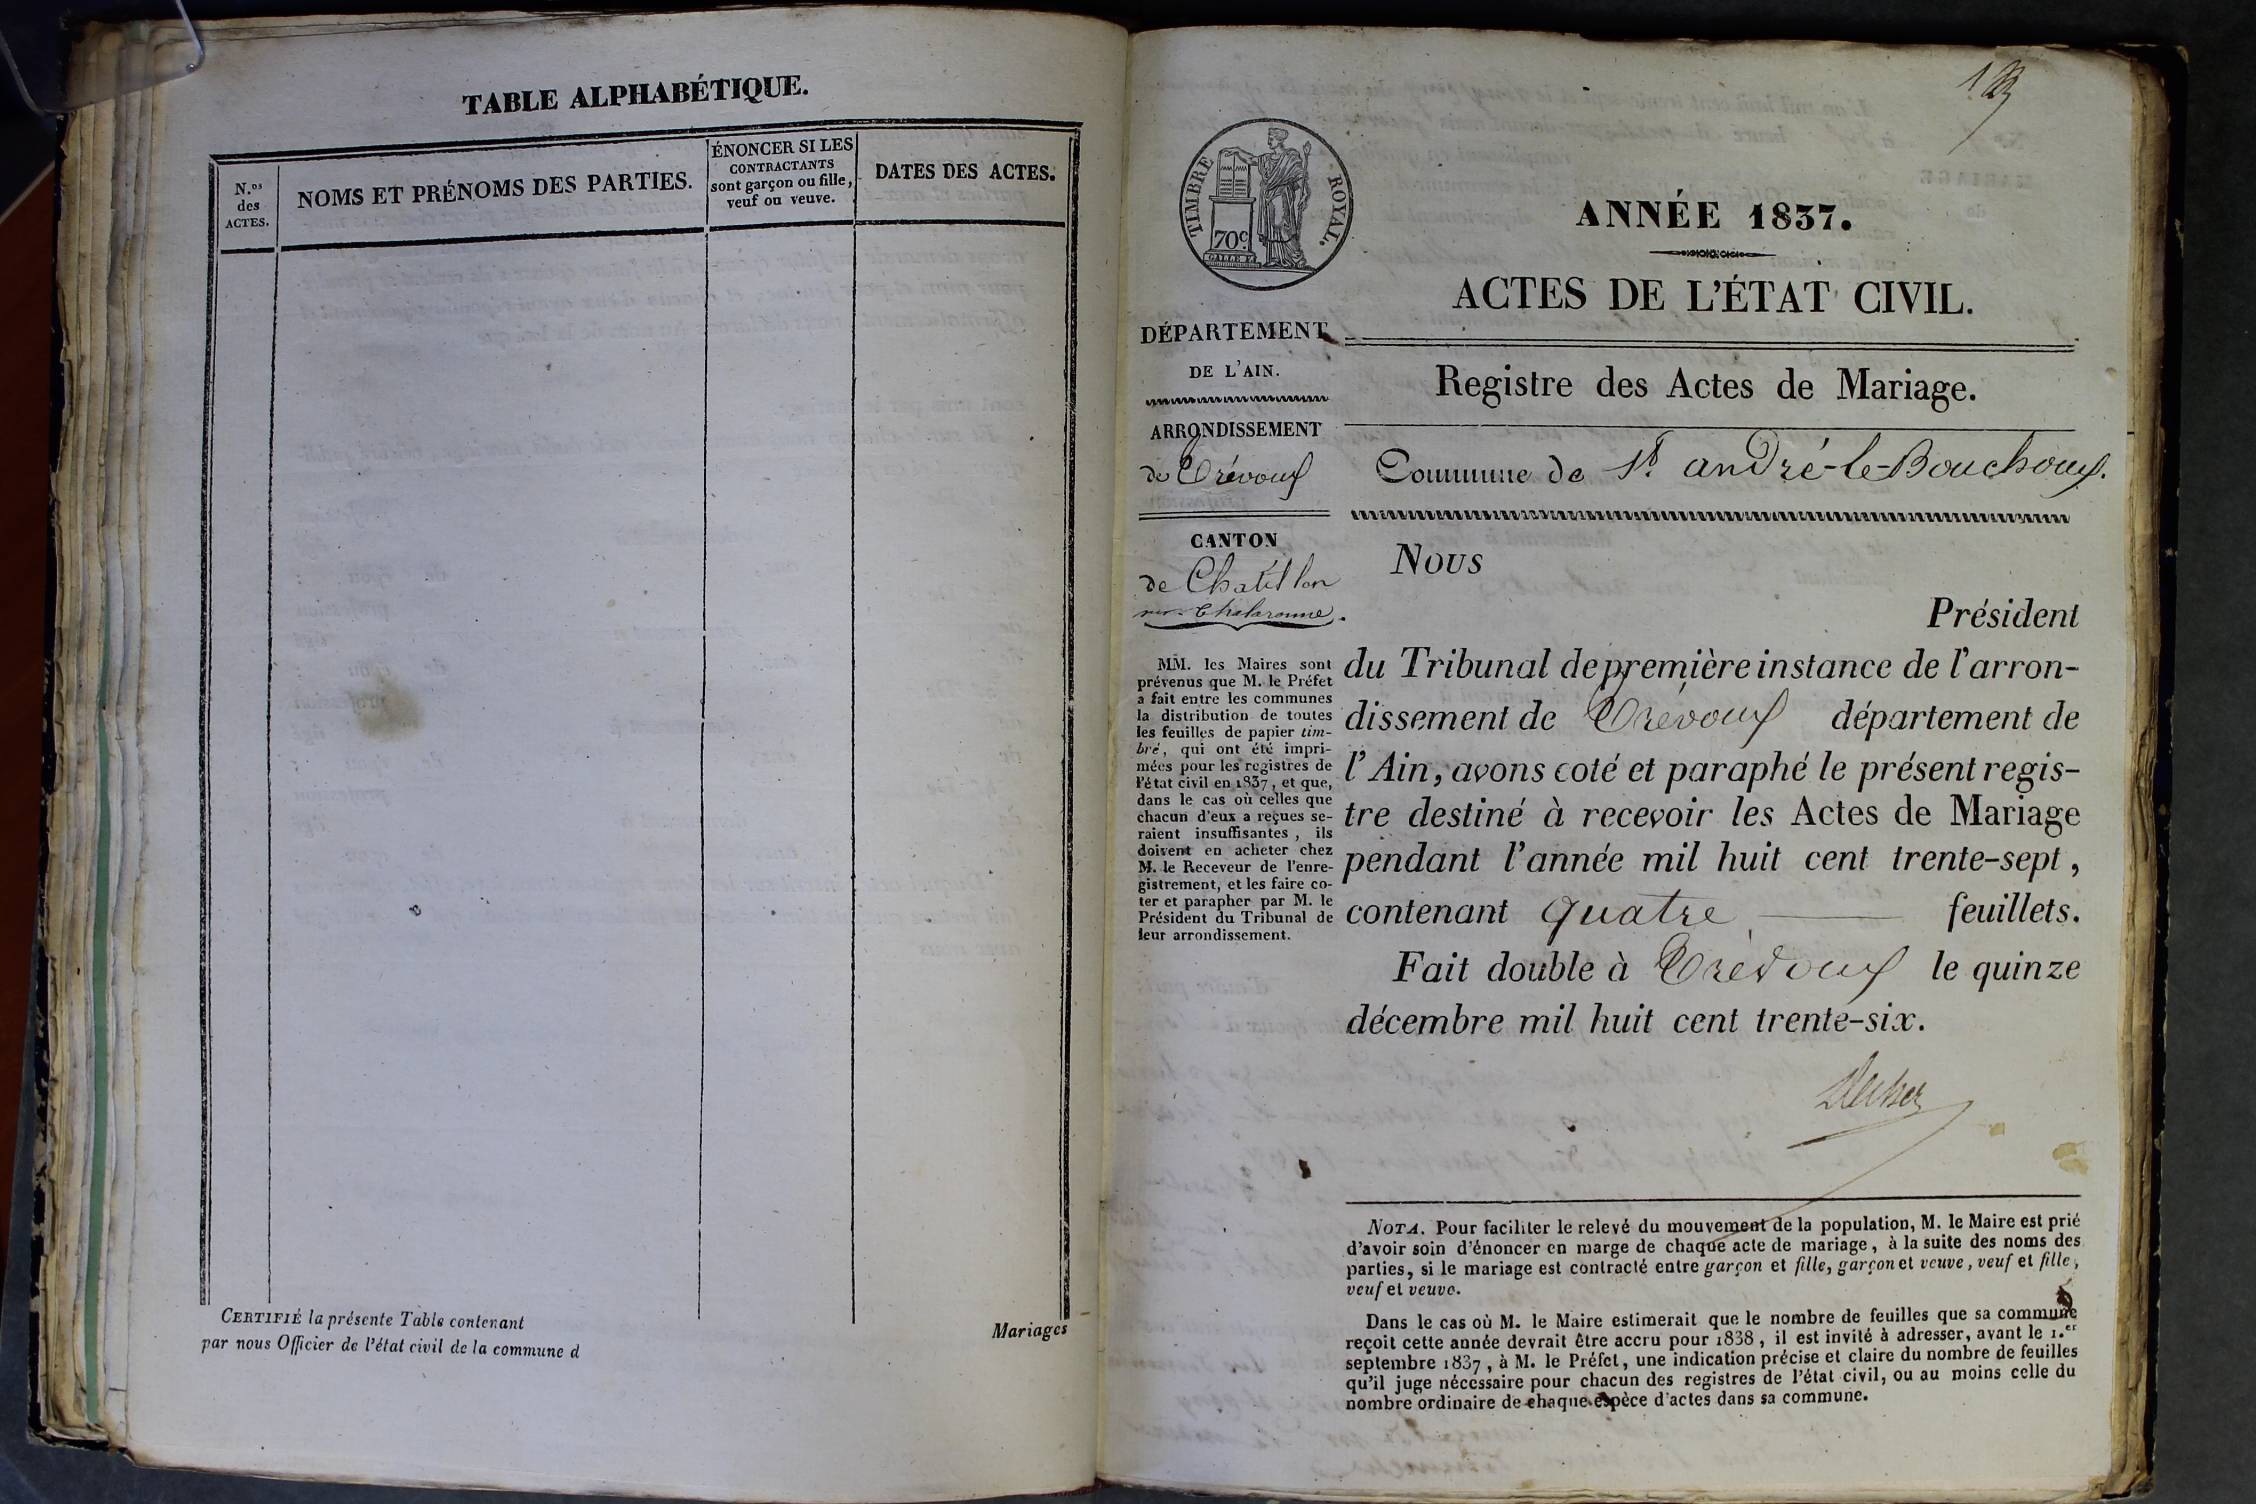 TABLE ALPHABÉTIQUE.
N.os
des
ACTES.
NOMS ET PRÉNOMS DES PARTIES.
ÉNONCER SI LES
CONTRACTANTS
sont garçon ou fille,
veuf ou veuve.
DATES DES ACTES.
CERTIFIÉ la présente Table contenant Mariages
par nous Officier de l'état civil de la commune d
TIMBRE ROYAL.
70c.
DÉPARTEMENT
DE L'AIN.
ARRONDISSEMENT
de Trévoux
CANTON
de Chatillon
sur-Chalaronne.
MM. les Maires sont
prévenus que M. le Préfet
a fait entre les communes
la distribution de toutes
les feuilles de papier tim-
bré, qui ont été impri-
mées pour les registres de
l'état civil en 1837, et que,
dans le cas où celles que
chacun d'eux a reçues se-
raient insuffisantes, ils
doivent en acheter chez
M. le Receveur de l'enre-
gistrement, et les faire co-
ter et parapher par M. le
Président du Tribunal de
leur arrondissement.
ANNÉE 1837.
ACTES DE L'ÉTAT CIVIL.
Registre des Actes de Mariage.
Commune de St. andré-le-Bouchoux.
NOUS
Président
du Tribunal de première instance de l'arron-
dissement de Trévoux département de
l'Ain, avons coté et paraphé le présent regis-
tre destiné à recevoir les Actes de Mariage
pendant l'année mil huit cent trente-sept,
contenant quatre feuillets.
Fait double à Trévoux le quinze
décembre mil huit cent trente-six.
NOTA. Pour faciliter le relevé du mouvement de la population, M. le Maire est prié
d'avoir soin d'énoncer en marge de chaque acte de mariage, à la suite des noms des
parties, si le mariage est contracté entre garçon et fille, garçon et veuve, veuf et fille,
veuf et veuve.
Dans le cas où M. le Maire estimerait que le nombre de feuilles que sa commune
reçoit cette année devrait être accru pour 1838, il est invité à adresser, avant le 1.er
septembre 1837, à M. le Préfet, une indication précise et claire du nombre de feuilles
qu'il juge nécessaire pour chacun des registres de l'état civil, ou au moins celle du
nombre ordinaire de chaque espèce d'actes dans sa commune.